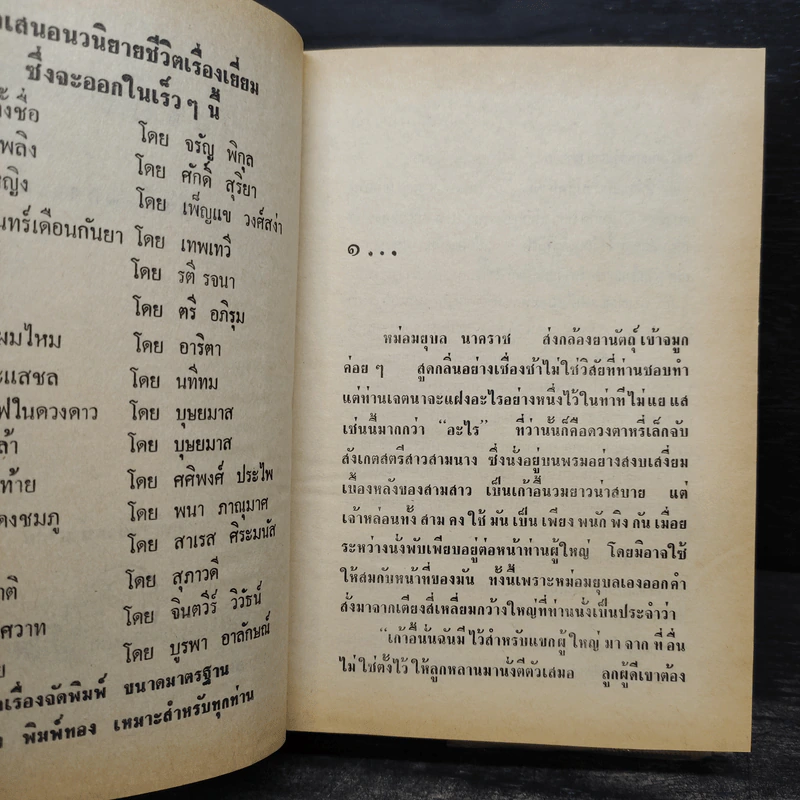 เสนอนวนิยายชีวิตเรื่องเยี่ยม
ซึ่งจะออกในเร็วๆ นี้
ชื่อ
เพลิง โดย จรัญ พิกุล
หญิง โดย ศักดิ์ สุริยา
โดย เพ็ญแข วงศ์สง่า
นทร์เดือนกันยา โดย เทพเทวี
โดย รตี รจนา
โดย ตรี อภิรุม
ผมไหม โดย อาริตา
แสชล โดย นทีทม
ฟในดวงดาว โดย บุษยมาส
ล้า โดย บุษยมาส
ท้าย โดย ศศิพงศ์ ประไพ
ดงชมภู โดย พนา ภาณุมาศ
โดย สาเรส ศิระมนัส
ติ โดย สุภาวดี
ศวาท โดย จินตวีร์ วิวัธน์
ย โดย บูรพา อาลักษณ์
เรื่องจัดพิมพ์ ขนาดมาตรฐาน
พิมพ์ทอง เหมาะสำหรับทุกท่าน
๑...
หม่อมยุบล นาคราช ส่งกล้องยานัตถุ์เข้าจมูก
ค่อยๆ สูดกลิ่นอย่างเชื่องช้าไม่ใช่วิสัยที่ท่านชอบทำ
แต่ท่านเจตนาจะแฝงอะไรอย่างหนึ่งไว้ในท่าทีไม่แยแส
เช่นนี้มากกว่า “อะไร” ที่ว่านั้นก็คือดวงตาหรี่เล็กจับ
สังเกตสตรีสาวสามนาง ซึ่งนั่งอยู่บนพรมอย่างสงบเสงี่ยม
เบื้องหลังของสามสาว เป็นเก้าอี้นวมยาวน่าสบาย แต่
เจ้าหล่อนทั้งสามคงใช้มันเป็นเพียงพนักพิงกันเมื่อย
ระหว่างนั่งพับเพียบอยู่ต่อหน้าท่านผู้ใหญ่ โดยมิอาจใช้
ให้สมกับหน้าที่ของมัน ทั้งนี้เพราะหม่อมยุบลเองออกคำ
สั่งมาจากเตียงสี่เหลี่ยมกว้างใหญ่ที่ท่านนั่งเป็นประจำว่า
“เก้าอี้นั่นฉันมีไว้สำหรับแขกผู้ใหญ่มาจากที่อื่น
ไม่ใช่ตั้งไว้ให้ลูกหลานมานั่งตีตัวเสมอ ลูกผู้ดีเขาต้อง